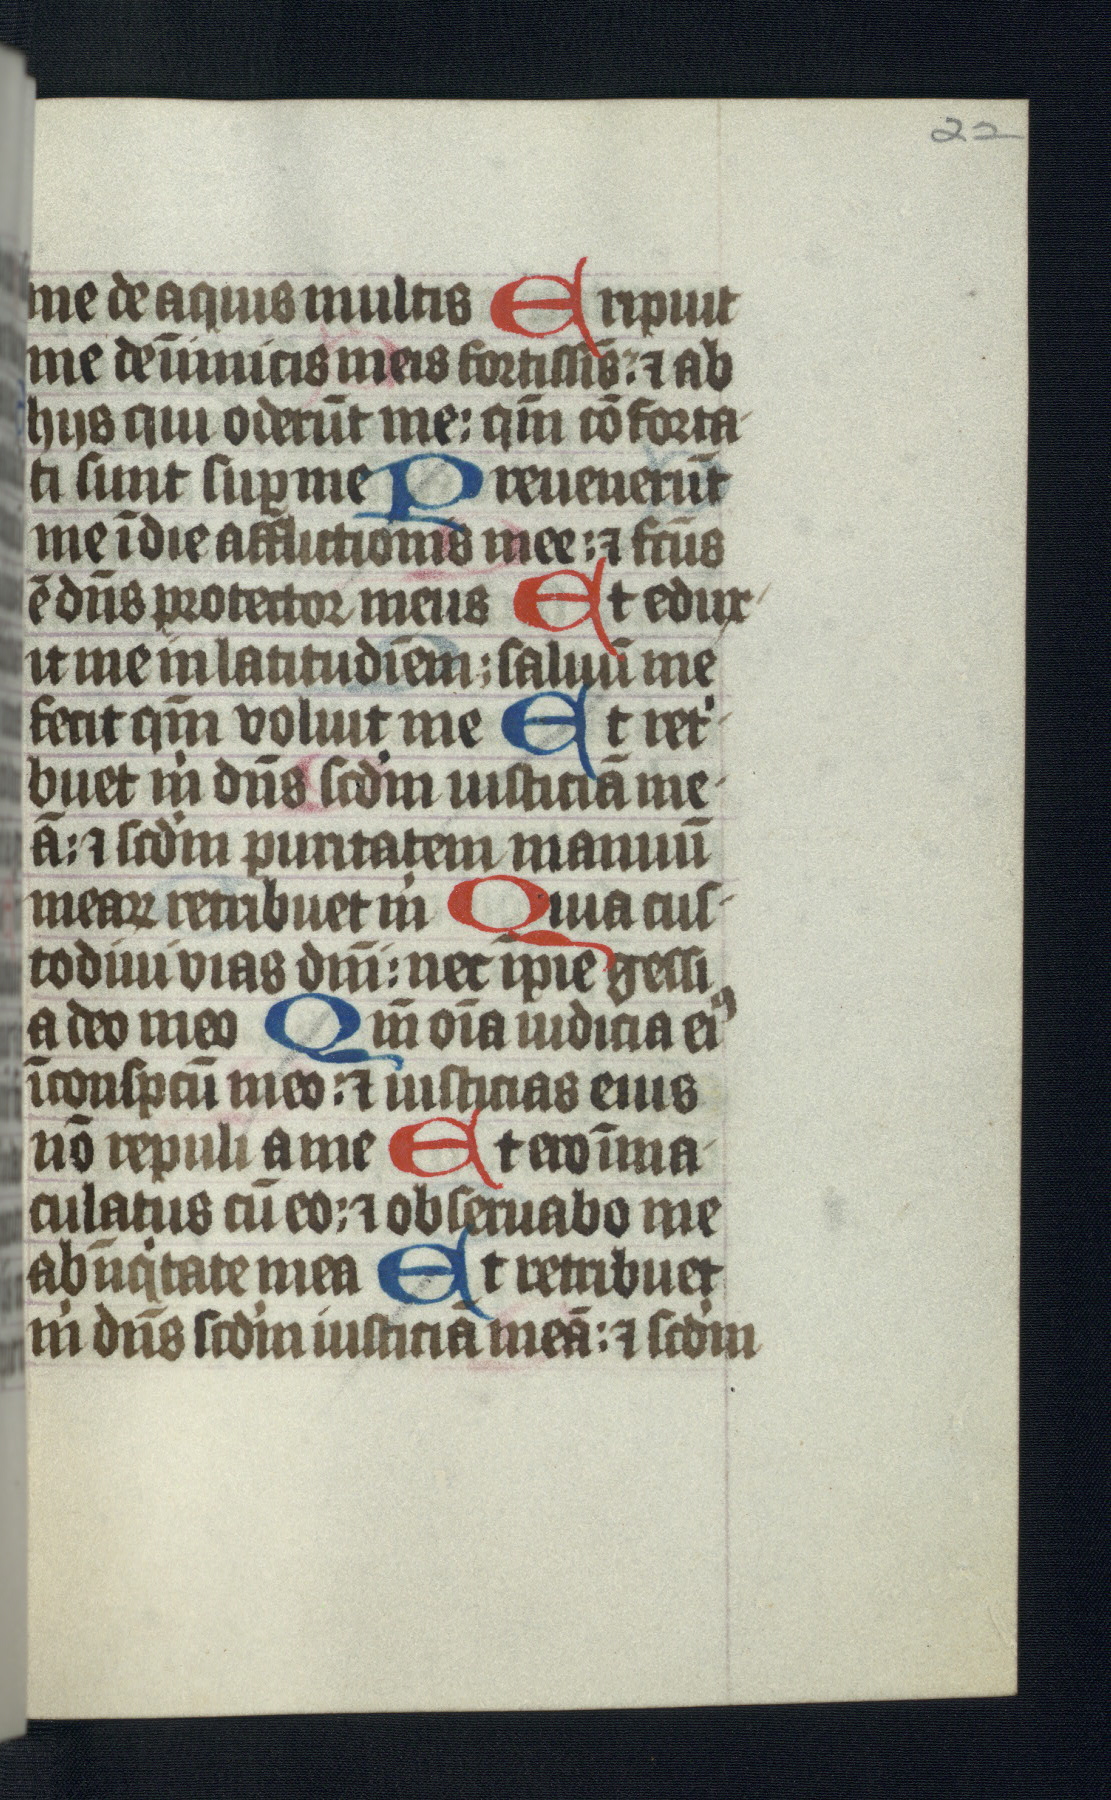 22
me de aquis multis Eripuit
me de īimicis meis fortissīs: ⁊ ab
hijs qui oderūt me: qm̄ cōforta-
ti sunt sup me Preuenerūt
me ī die afflictionis mee: ⁊ fcūs
ē dn̄s protector meus Et edux-
it me in latitudiēm: saluū me
fecit qm̄ voluit me Et ret'-
buet m' dn̄s scd'm iusticiā me-
ā: ⁊ scd'm puritatem manuū
meaꝝ retribuet m' Quia cus-
todiui vias dn̄i: nec īpie gessi
a deo meo Qm̄ oīa iudicia eiꝰ
ī conspcū meo: ⁊ iusticias eius
nō repuli a me Et ero īma-
culatus cū eo: ⁊ obseruabo me
ab īiq'tate mea Et retribuet
m' dn̄s scd'm iusticiā meā: ⁊ scd'm